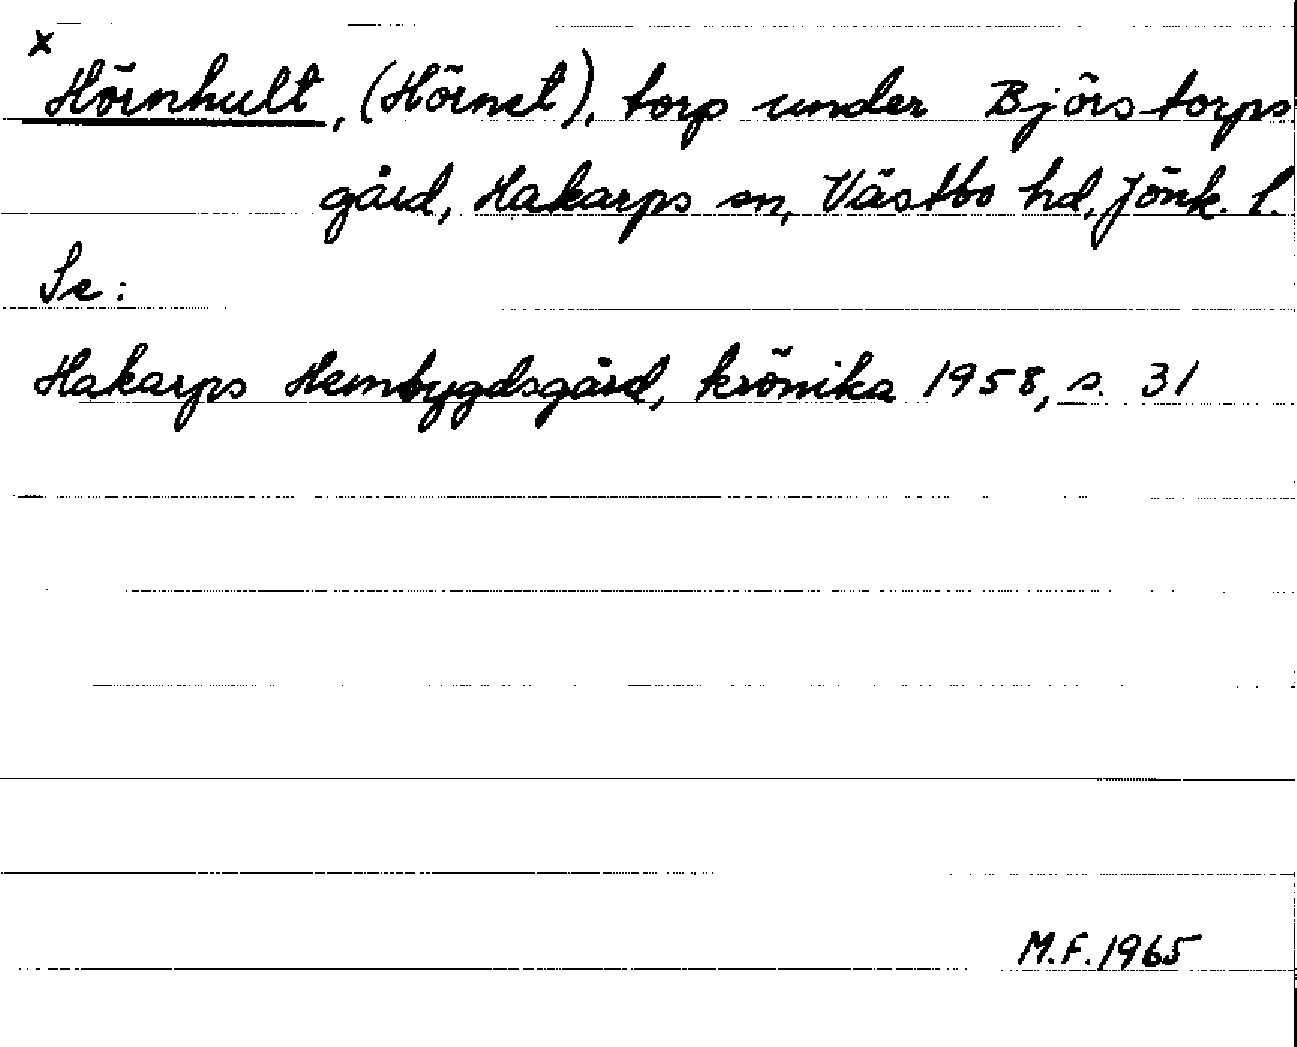 x
Hörnhult, (Hörnet), torp under Björstorps
gård, Hakarps sn, Västbo hd, Jönk. l.
Se:
Hakarps Hembygdsgård, krönika 1958, s. 31
M.F. 1965